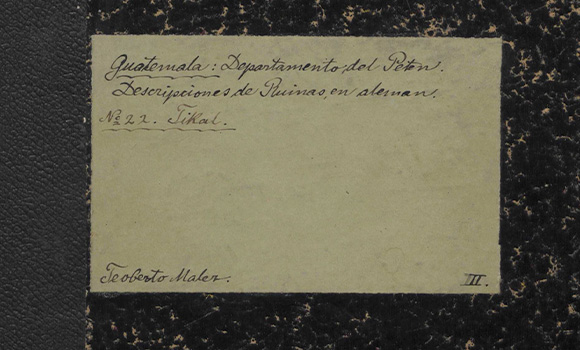 Guatemala: Departamento del Peten.
Descripciones de Ruinas en aleman.
Nº 22. Tikal.
Teoberto Maler.
III.